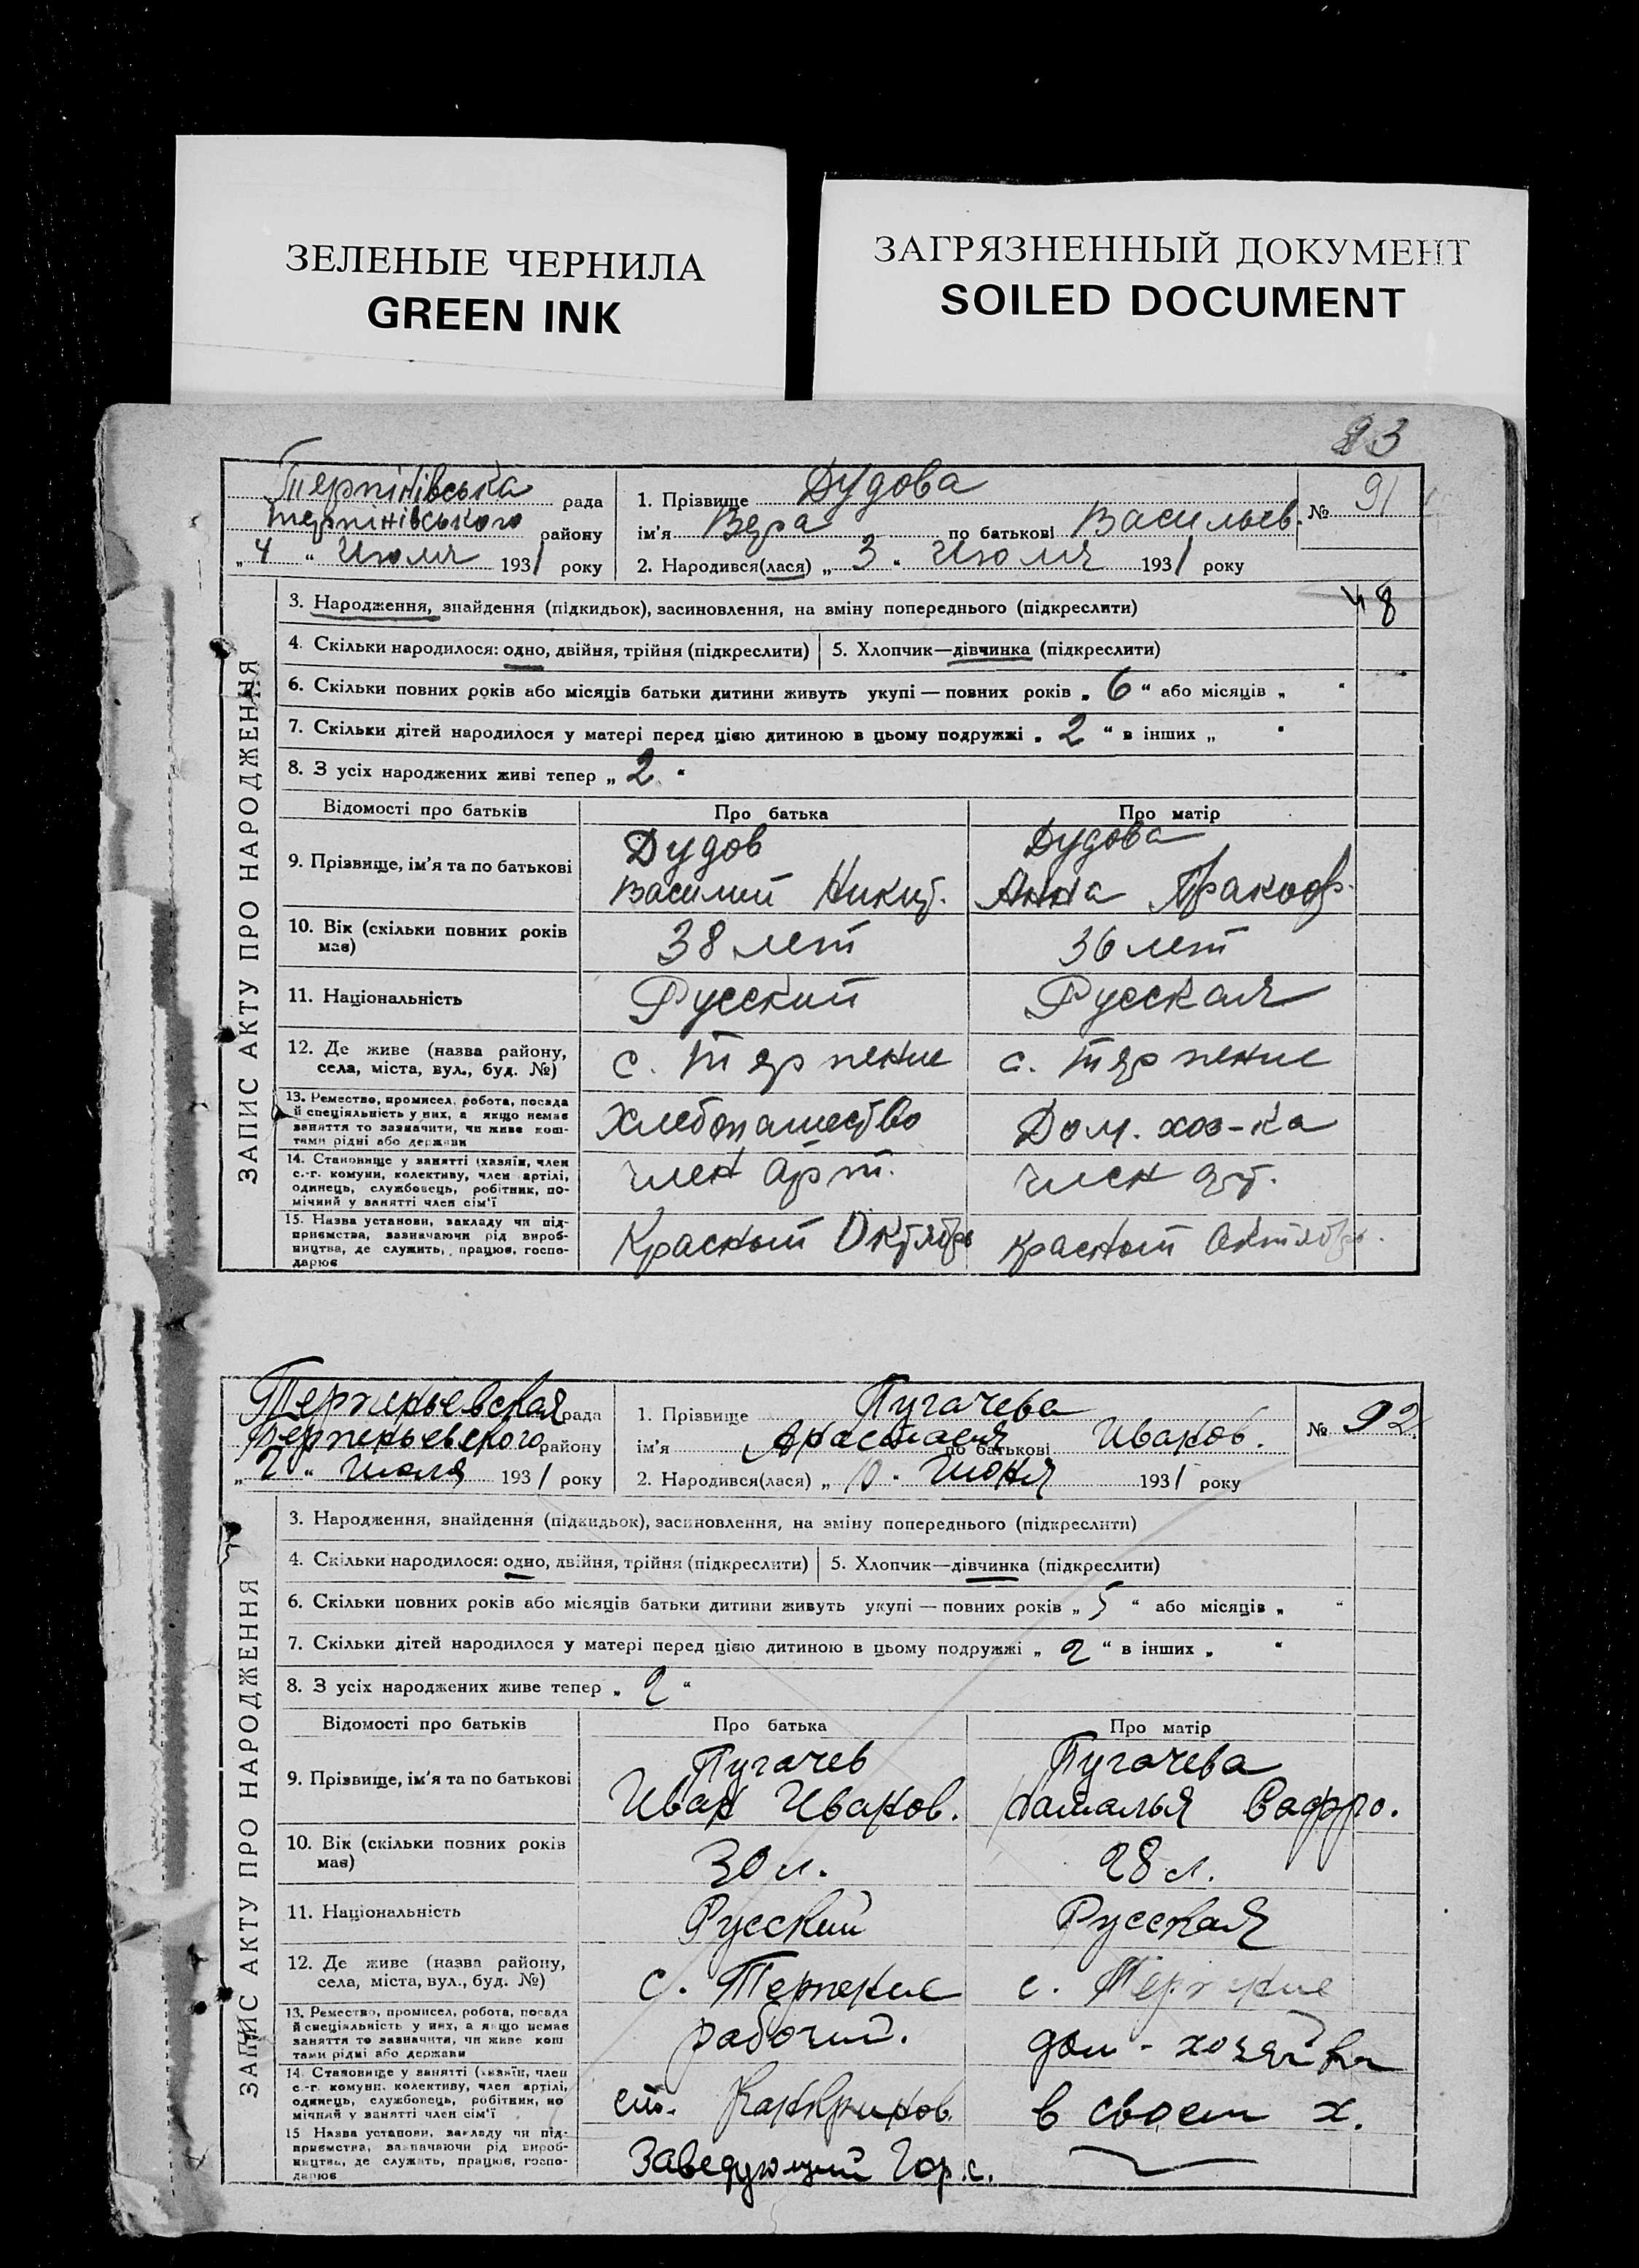 ЗЕЛЕНЫЕ ЧЕРНИЛА
GREEN INK
ЗАГРЯЗНЕННЫЙ ДОКУМЕНТ
SOILED DOCUMENT
Терпінівська рада
терпінівського району
„4“ Июля 1931 року
1. Прізвище Дудова
ім'я Вера по батькові Васильев.
2. Народився(лася) „3“ Июля 1931 року
№ 91
ЗАПИС АКТУ ПРО НАРОДЖЕННЯ
3. Народження, знайдення (підкидьок), засиновлення, на зміну попереднього (підкреслити)
48
4. Скільки народилося: одно, двійня, трійня (підкреслити)
5. Хлопчик—дівчинка (підкреслити)
6. Скільки повних років або місяців батьки дитини живуть укупі — повних років „6“ або місяців „ “
7. Скільки дітей народилося у матері перед цією дитиною в цьому подружжі „2“ в інших „ “
8. З усіх народжених живі тепер „2“
Відомості про батьків Про батька Про матір
9. Прізвище, ім'я та по батькові
Дудов
Василий Никит.
Дудова
Анна
10. Вік (скільки повних років
має)
38 лет
36 лет
11. Національність
Русский
Русская
12. Де живе (назва району,
села, міста, вул., буд. №)
с. Терпение
с. Терпение
13. Ремество, промисел, робота, посада
й спеціяльність у них, а якщо немає
заняття то зазначити, чи живе кош-
тами рідні або держави
Хлебопашество
Дом. хоз-ка
14. Становище у занятті (хазяїн, член
с.-г. комуни, колективу, член артілі,
одинець, службовець, робітник, по-
мічний у занятті член сім'ї
член арт.
член арт.
15. Назва установи, закладу чи під-
приємства, зазначаючи рід вироб-
ництва, де служить, працює, госпо-
дарює
Красный Октябрь
Красный Октябрь.
Терпеньевская рада
Терпеньевского району
„2“ Июля 1931 року
1. Прізвище Пугачева
ім'я Анастасия по батькові Иванов.
2. Народився(лася) „10“ Июня 1931 року
№ 92
ЗАПИС АКТУ ПРО НАРОДЖЕННЯ
3. Народження, знайдення (підкидьок), засиновлення, на зміну попереднього (підкреслити)
4. Скільки народилося: одно, двійня, трійня (підкреслити)
5. Хлопчик—дівчинка (підкреслити)
6. Скільки повних років або місяців батьки дитини живуть укупі — повних років „5“ або місяців „ “
7. Скільки дітей народилося у матері перед цією дитиною в цьому подружжі „2“ в інших „ “
8. З усіх народжених живе тепер „2“
Відомості про батьків Про батька Про матір
9. Прізвище, ім'я та по батькові
Пугачев
Иван Иванов.
Пугачева
Наталья
10. Вік (скільки повних років
має)
30 л.
28 л.
11. Національність
Русский
Русская
12. Де живе (назва району,
села, міста, вул., буд. №)
с. Терпение
с. Терпение
13. Ремество, промисел, робота, посада
й спеціяльність у них, а якщо немає
заняття то зазначити, чи живе кош
тами рідні або держави
рабочий.
дом-хозяйка
14. Становище у занятті (хазяїн, член
с.-г. комуни, колективу, член артілі,
одинець, службовець, робітник, по
мічний у занятті член сім'ї
ст.
в своем х.
15 Назва установи, закладу чи під-
приємства, зазначаючи рід вироб-
ництва, де служить, працює, госпо-
дарює
Заведующий